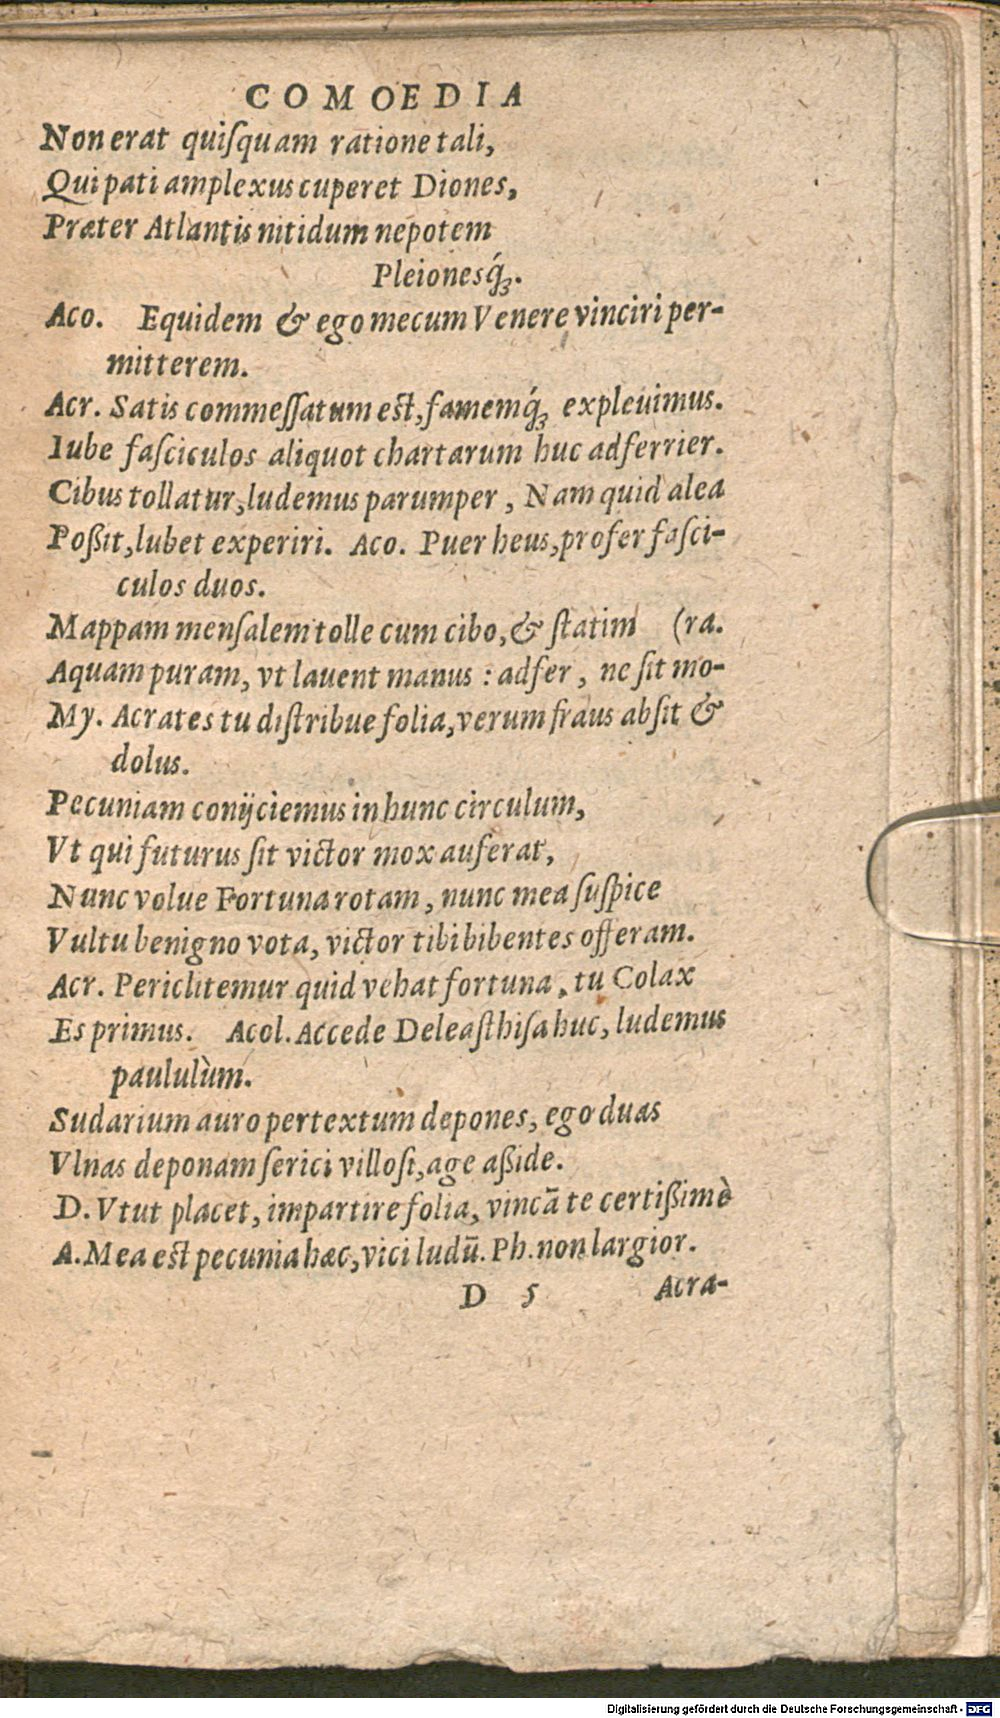 COMOEDIA
Non erat quiſquam ratione tali,
Qui pati amplexus cuperet Diones,
Præter Atlantis nitidum nepotem
Pleionesq́ꝫ.
Aco. Equidem & ego mecum Venere vinciri per-
mitterem.
Acr. Satis commeſſatum est, famemq́ꝫ expleuimus.
Iube faſciculos aliquot chartarum huc adferrier.
Cibus tollatur, ludemus parumper, Nam quid alea
Poßit, lubet experiri. Aco. Puer heus, profer faſci-
culos duos.
Mappam menſalem tolle cum cibo, & ſtatim (ra.
Aquam puram, vt lauent manus: adfer, ne ſit mo-
My. Acrates tu diſtribue folia, verum fraus abſit &
dolus.
Pecuniam conijciemus in hunc circulum,
Vt qui futurus ſit victor mox auferat,
Nunc volue Fortuna rotam, nunc mea ſuſpice
Vultu benigno vota, victor tibi bibentes offeram.
Acr. Periclitemur quid vehat fortuna, tu Colax
Es primus. Acol. Accede Deleaſthiſa huc, ludemus
paululùm.
Sudarium auro pertextum depones, ego duas
Vlnas deponam ſerici villoſi, age aßide.
D. Vtut placet, impartire folia, vincā te certißimè
A. Mea est pecunia hæc, vici ludū. Ph. non largior.
D 5 Acra-
Digitalisierung gefördert durch die Deutsche Forschungsgemeinschaft - DFG